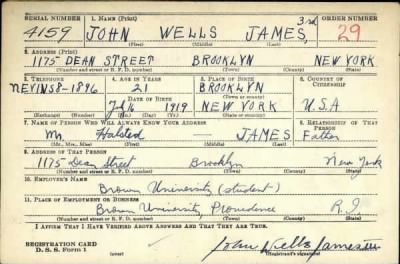 SERIAL NUMBER 1. Name (Print) ORDER NUMBER
4159 JOHN WELLS JAMES, 3rd 29
(First) (Middle) (Last)
2. Address (Print)
1175 DEAN STREET BROOKLYN NEW YORK
(Number and street or R. F. D. number) (Town) (County) (State)
3. Telephone 4. Age in Years 5. Place of Birth 6. Country of Citizenship
NEVINS 8-1896 21 BROOKLYN
Date of Birth
1919 NEW YORK U.S.A
(Exchange) (Number) (Mo.) (Day) (Yr.) (State or country)
7. Name of Person Who Will Always Know Your Address 8. Relationship of That Person
Mr. Halsted — JAMES Father
(Mr., Mrs., Miss) (First) (Middle) (Last)
9. Address of That Person
1175 Dean Street Brooklyn New York
(Number and street or R. F. D. number) (Town) (County) (State)
10. Employer's Name
Brown University (student)
11. Place of Employment or Business
Brown University, Providence R.I.
(Number and street or R. F. D. number) (Town) (County) (State)
I Affirm That I Have Verified Above Answers and That They Are True.
REGISTRATION CARD
D. S. S. Form 1 (over) John Wells James
(Registrant's signature)